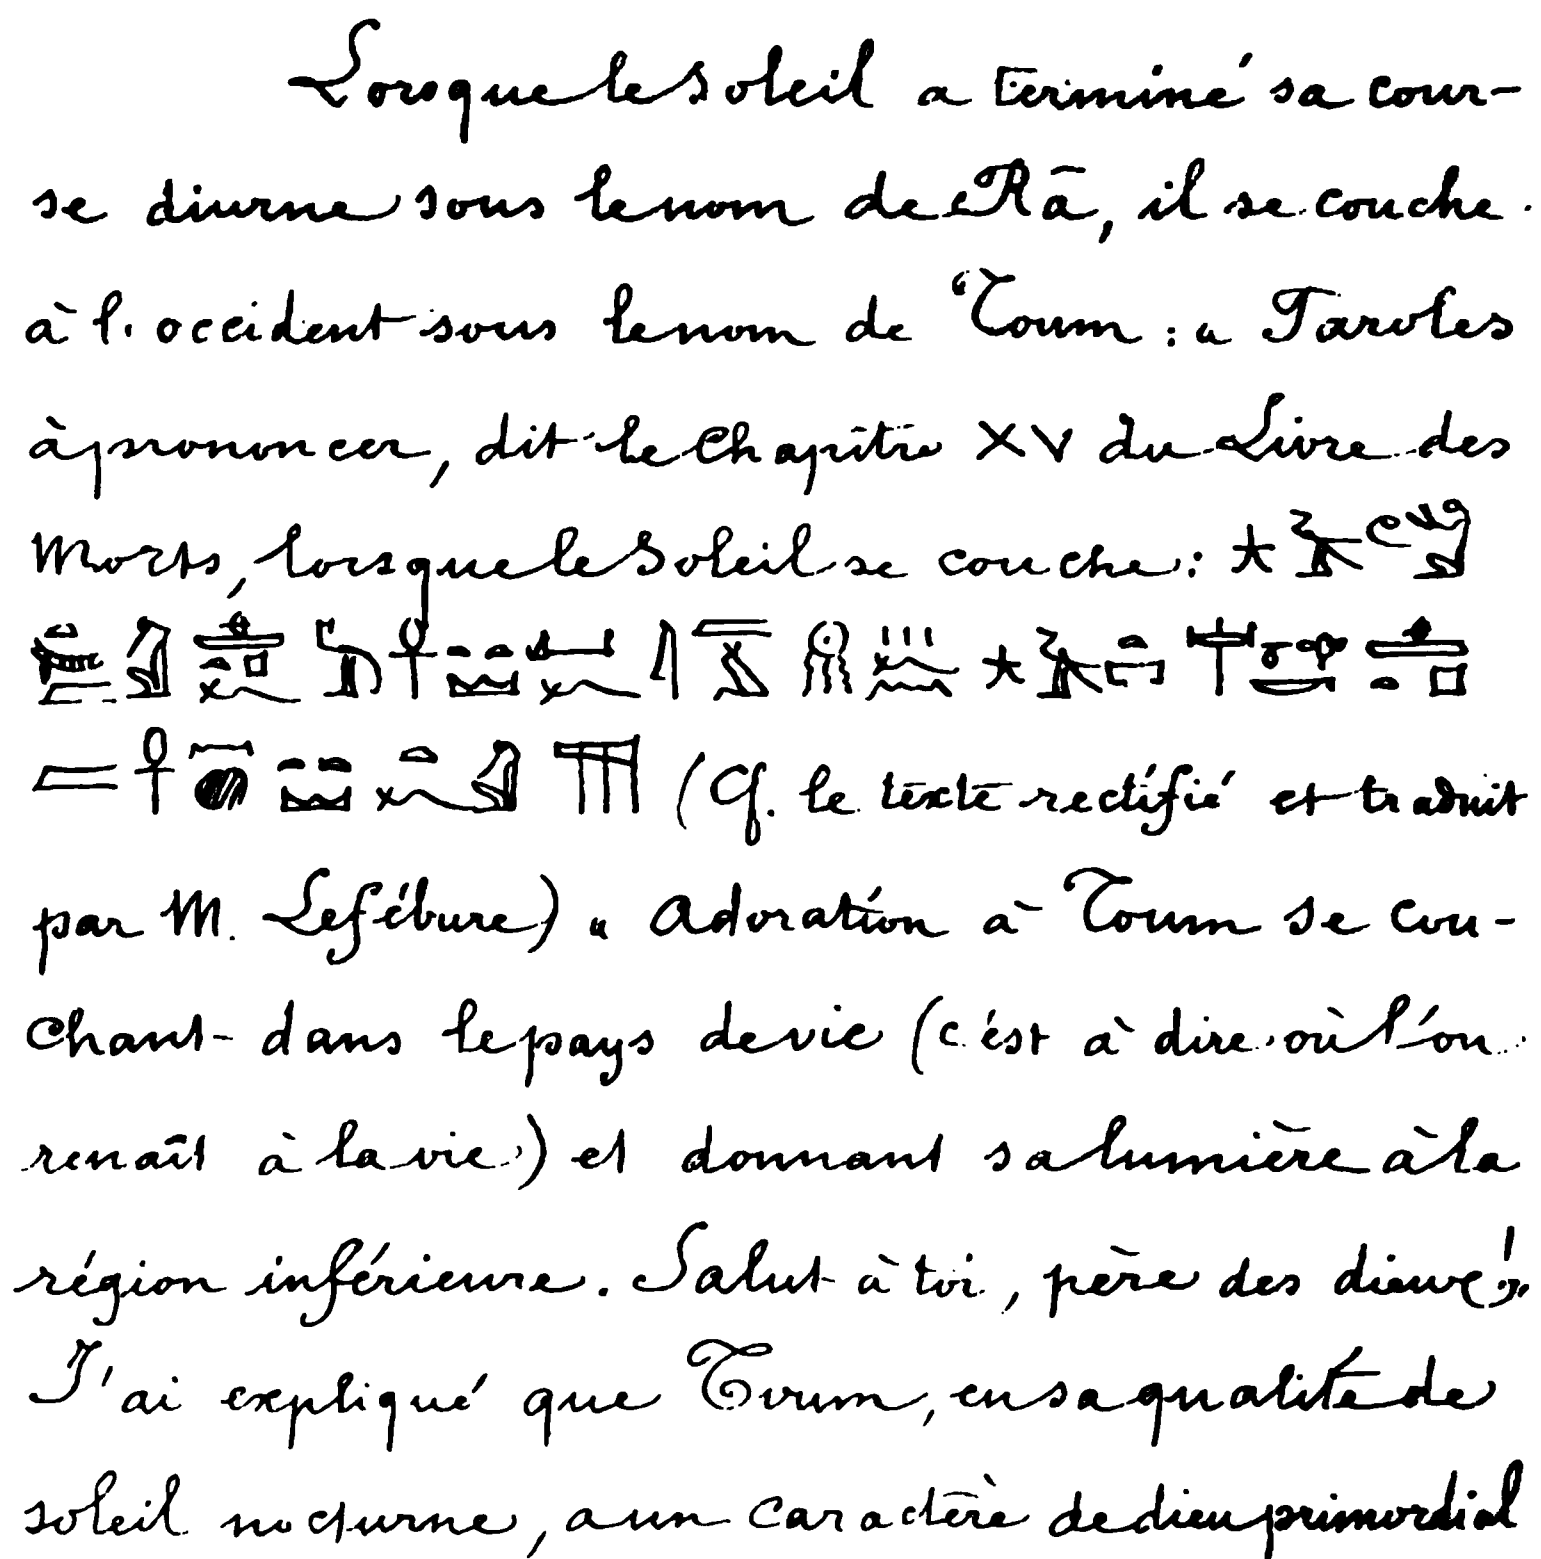 Lorsque le soleil a terminé sa cour-
se diurne sous le nom de Râ, il se couche
à l'occident sous le nom de Toum : « Paroles
à prononcer, dit le Chapitre XV du Livre des
Morts, lorsque le Soleil se couche :
(Cf. le texte rectifié et traduit
par M. Lefébure) « Adoration à Toum se cou-
chant dans le pays de vie (c'est à dire où l'on
renaît à la vie) et donnant sa lumière à la
région inférieure. Salut à toi, père des dieux! »
J'ai expliqué que Toum, en sa qualité de
soleil nocturne, a un caractère de dieu primordial